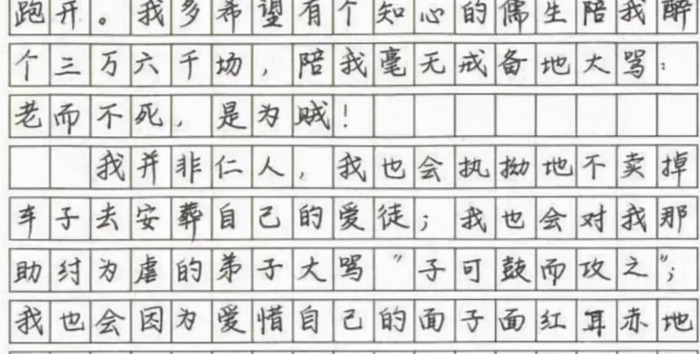 跑开。我多希望有个知心的儒生陪我醉
个三万六千场，陪我毫无戒备地大骂：
老而不死，是为贼！
我并非仁人，我也会执拗地不卖掉
车子去安葬自己的爱徒；我也会对我那
助纣为虐的弟子大骂“子可鼓而攻之”；
我也会因为爱惜自己的面子面红耳赤地